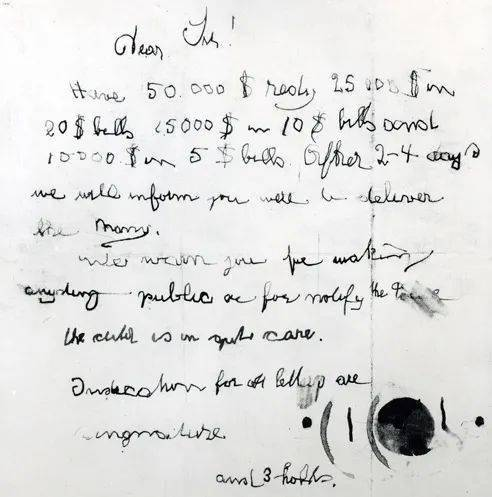 Dear Sir!
Have 50.000 $ redy 25 000 $ in
20 $ bills 15000 $ in 10 $ bills and
10000 $ in 5 $ bills After 2-4 days
we will inform you were to deliver
the mony.
we warn you for making
anyding public or for notify the
the child is in gut care.
Indication for all are
singnature
and 3 holds.